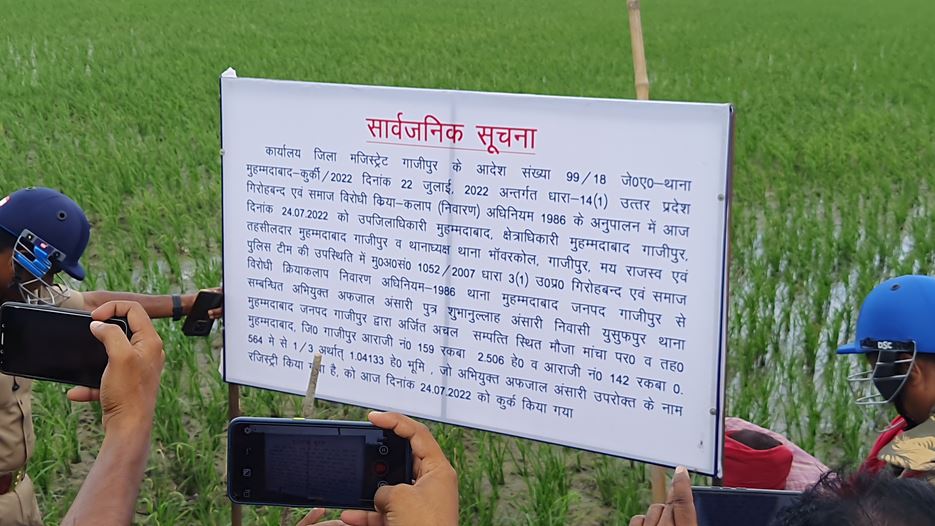 सार्वजनिक सूचना
कार्यालय जिला मजिस्ट्रेट गाजीपुर के आदेश संख्या 99/18 जे0ए0-थाना
मुहम्मदाबाद-कुर्की/2022 दिनांक 22 जुलाई, 2022 अन्तर्गत धारा-14(1) उत्तर प्रदेश
गिरोहबन्द एवं समाज विरोधी क्रिया-कलाप (निवारण) अधिनियम 1986 के अनुपालन में आज
दिनांक 24.07.2022 को उपजिलाधिकारी मुहम्मदाबाद, क्षेत्राधिकारी मुहम्मदाबाद गाजीपुर,
तहसीलदार मुहम्मदाबाद गाजीपुर व थानाध्यक्ष थाना भॉवरकोल, गाजीपुर, मय राजस्व एवं
पुलिस टीम की उपस्थिति में मु0अ0सं0 1052/2007 धारा 3(1) उ0प्र0 गिरोहबन्द एवं समाज
विरोधी क्रियाकलाप निवारण अधिनियम-1986 थाना मुहम्मदाबाद जनपद गाजीपुर से
सम्बन्धित अभियुक्त अफजाल अंसारी पुत्र शुभानुल्लाह अंसारी निवासी युसुफपुर थाना
मुहम्मदाबाद जनपद गाजीपुर द्वारा अर्जित अचल सम्पत्ति स्थित मौजा माचा पर0 व तह0
मुहम्मदाबाद, जि0 गाजीपुर आराजी नं0 159 रकबा 2.506 हे0 व आराजी नं0 142 रकबा 0.
564 मे से 1/3 अर्थात् 1.04133 हे0 भूमि , जो अभियुक्त अफजाल अंसारी उपरोक्त के नाम
रजिस्ट्री किया गया है, को आज दिनांक 24.07.2022 को कुर्क किया गया
DSC